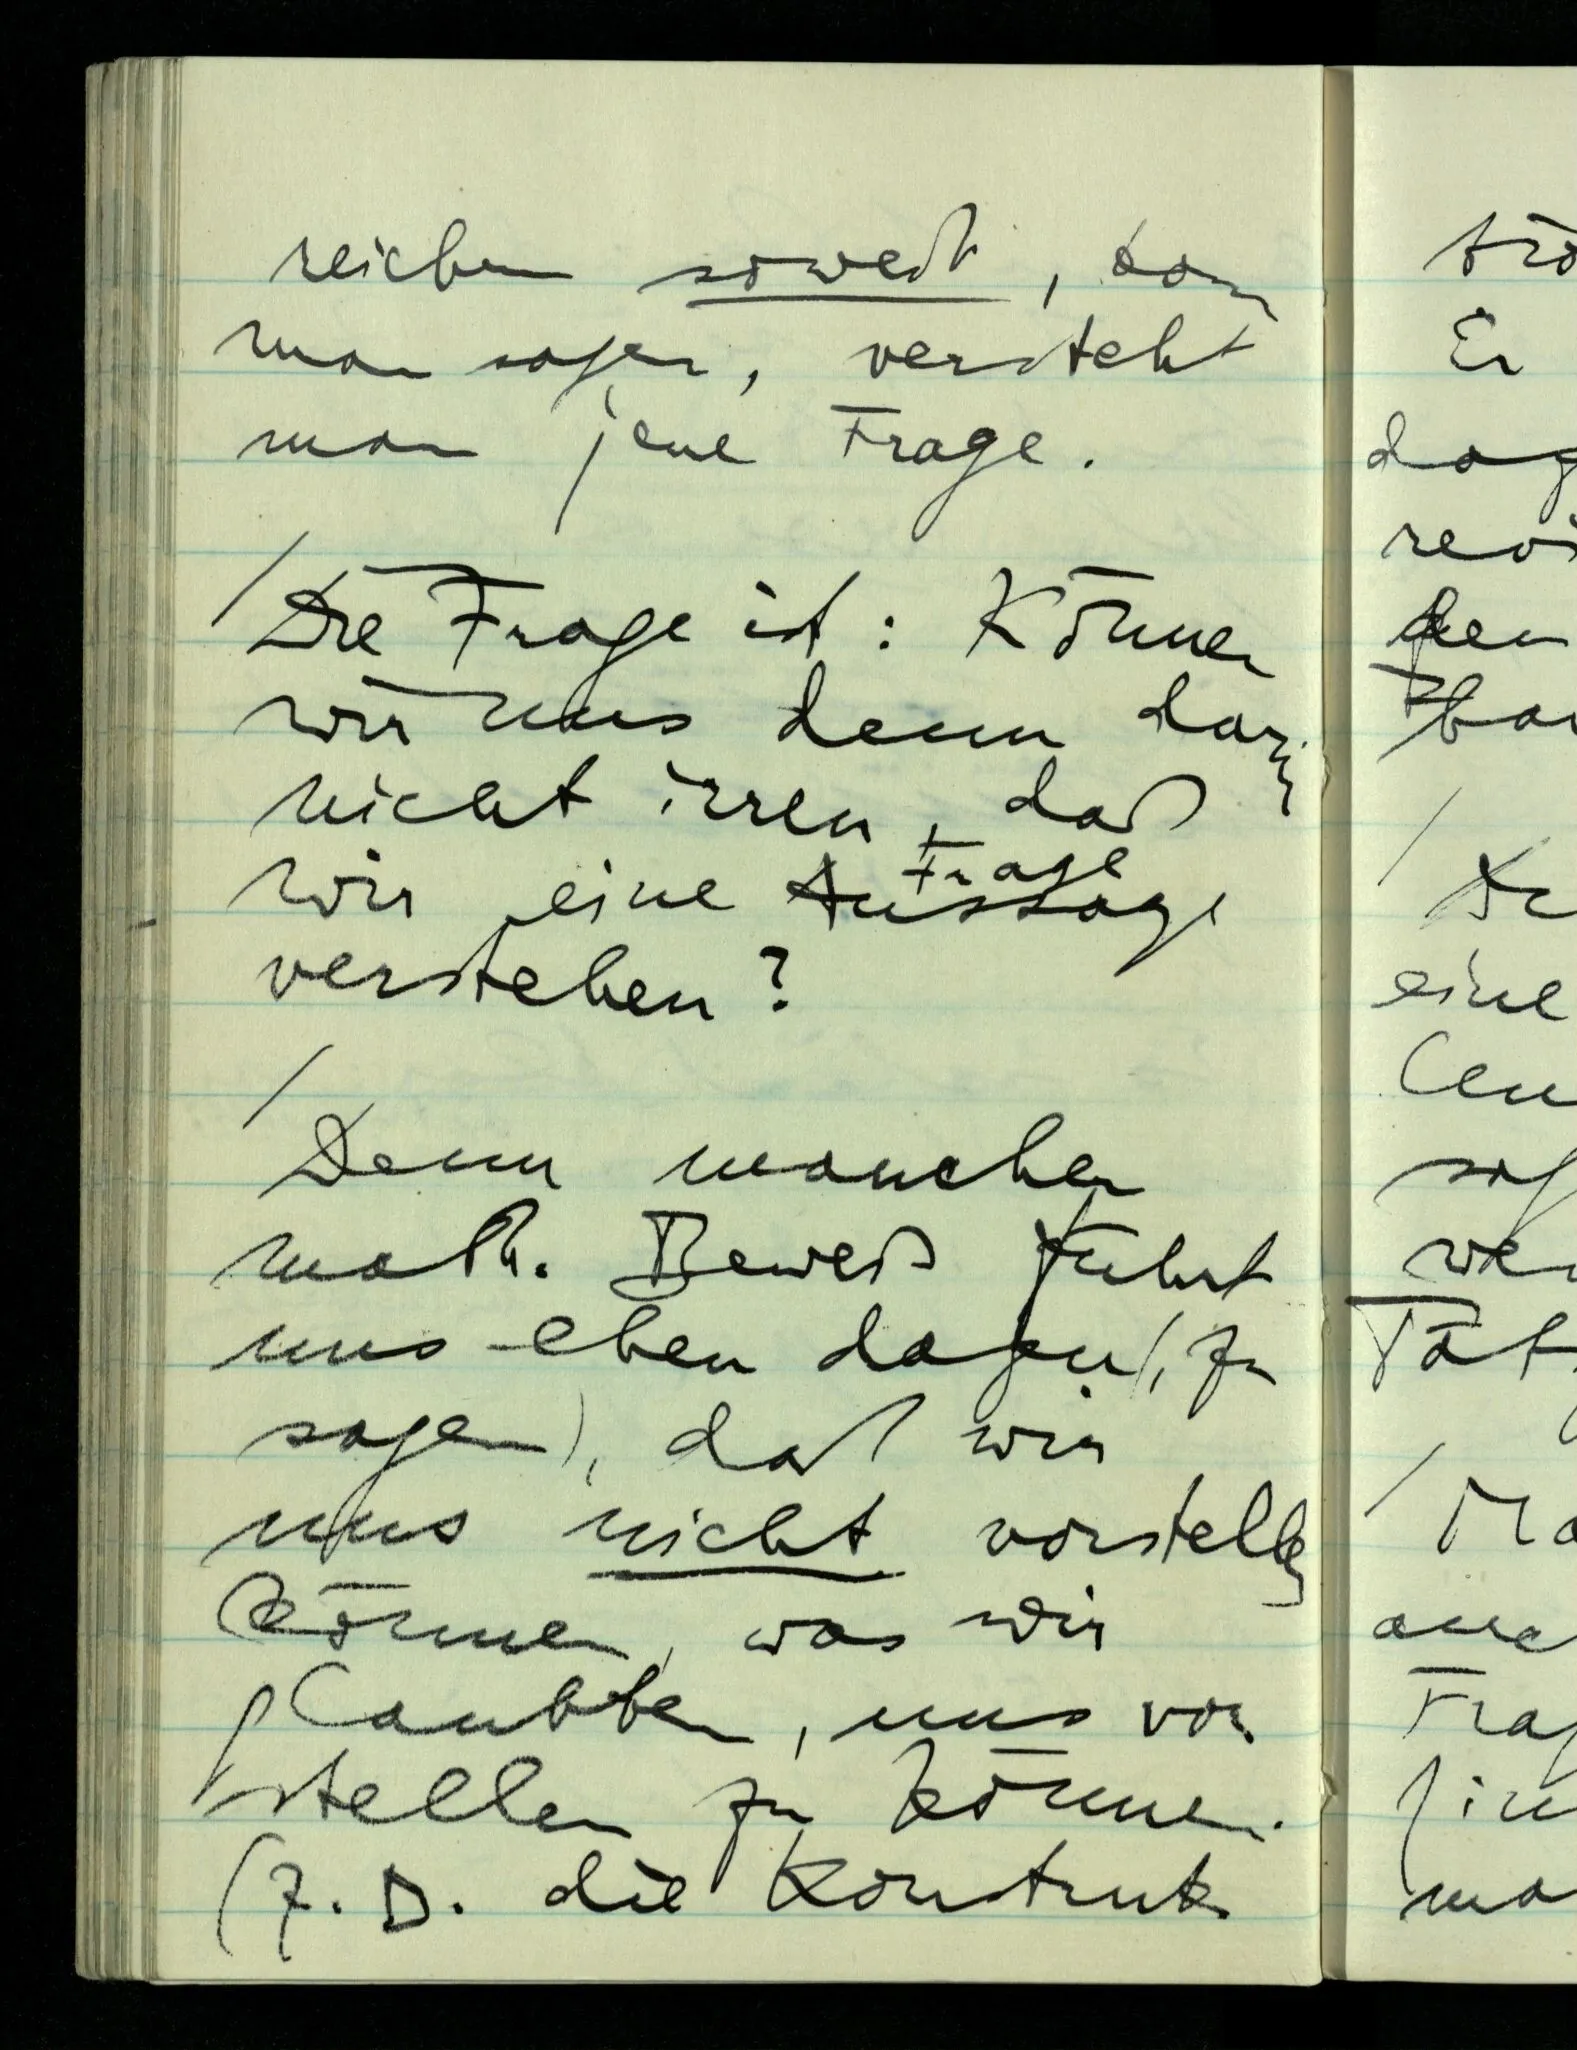 reichen soweit, kann
man sagen, versteht
man jene Frage.
/
Die Frage ist: Können
wir uns denn darin
nicht irren, daß
wir eine Aussage Frage
verstehen?
/
Denn mancher
math. Beweis führt
uns eben dazu, zu
sagen, daß wir
uns nicht vorstellen
können, was wir
glaubten, uns vor-
stellen zu können.
(Z.B. die Konstruk-
Er
eine